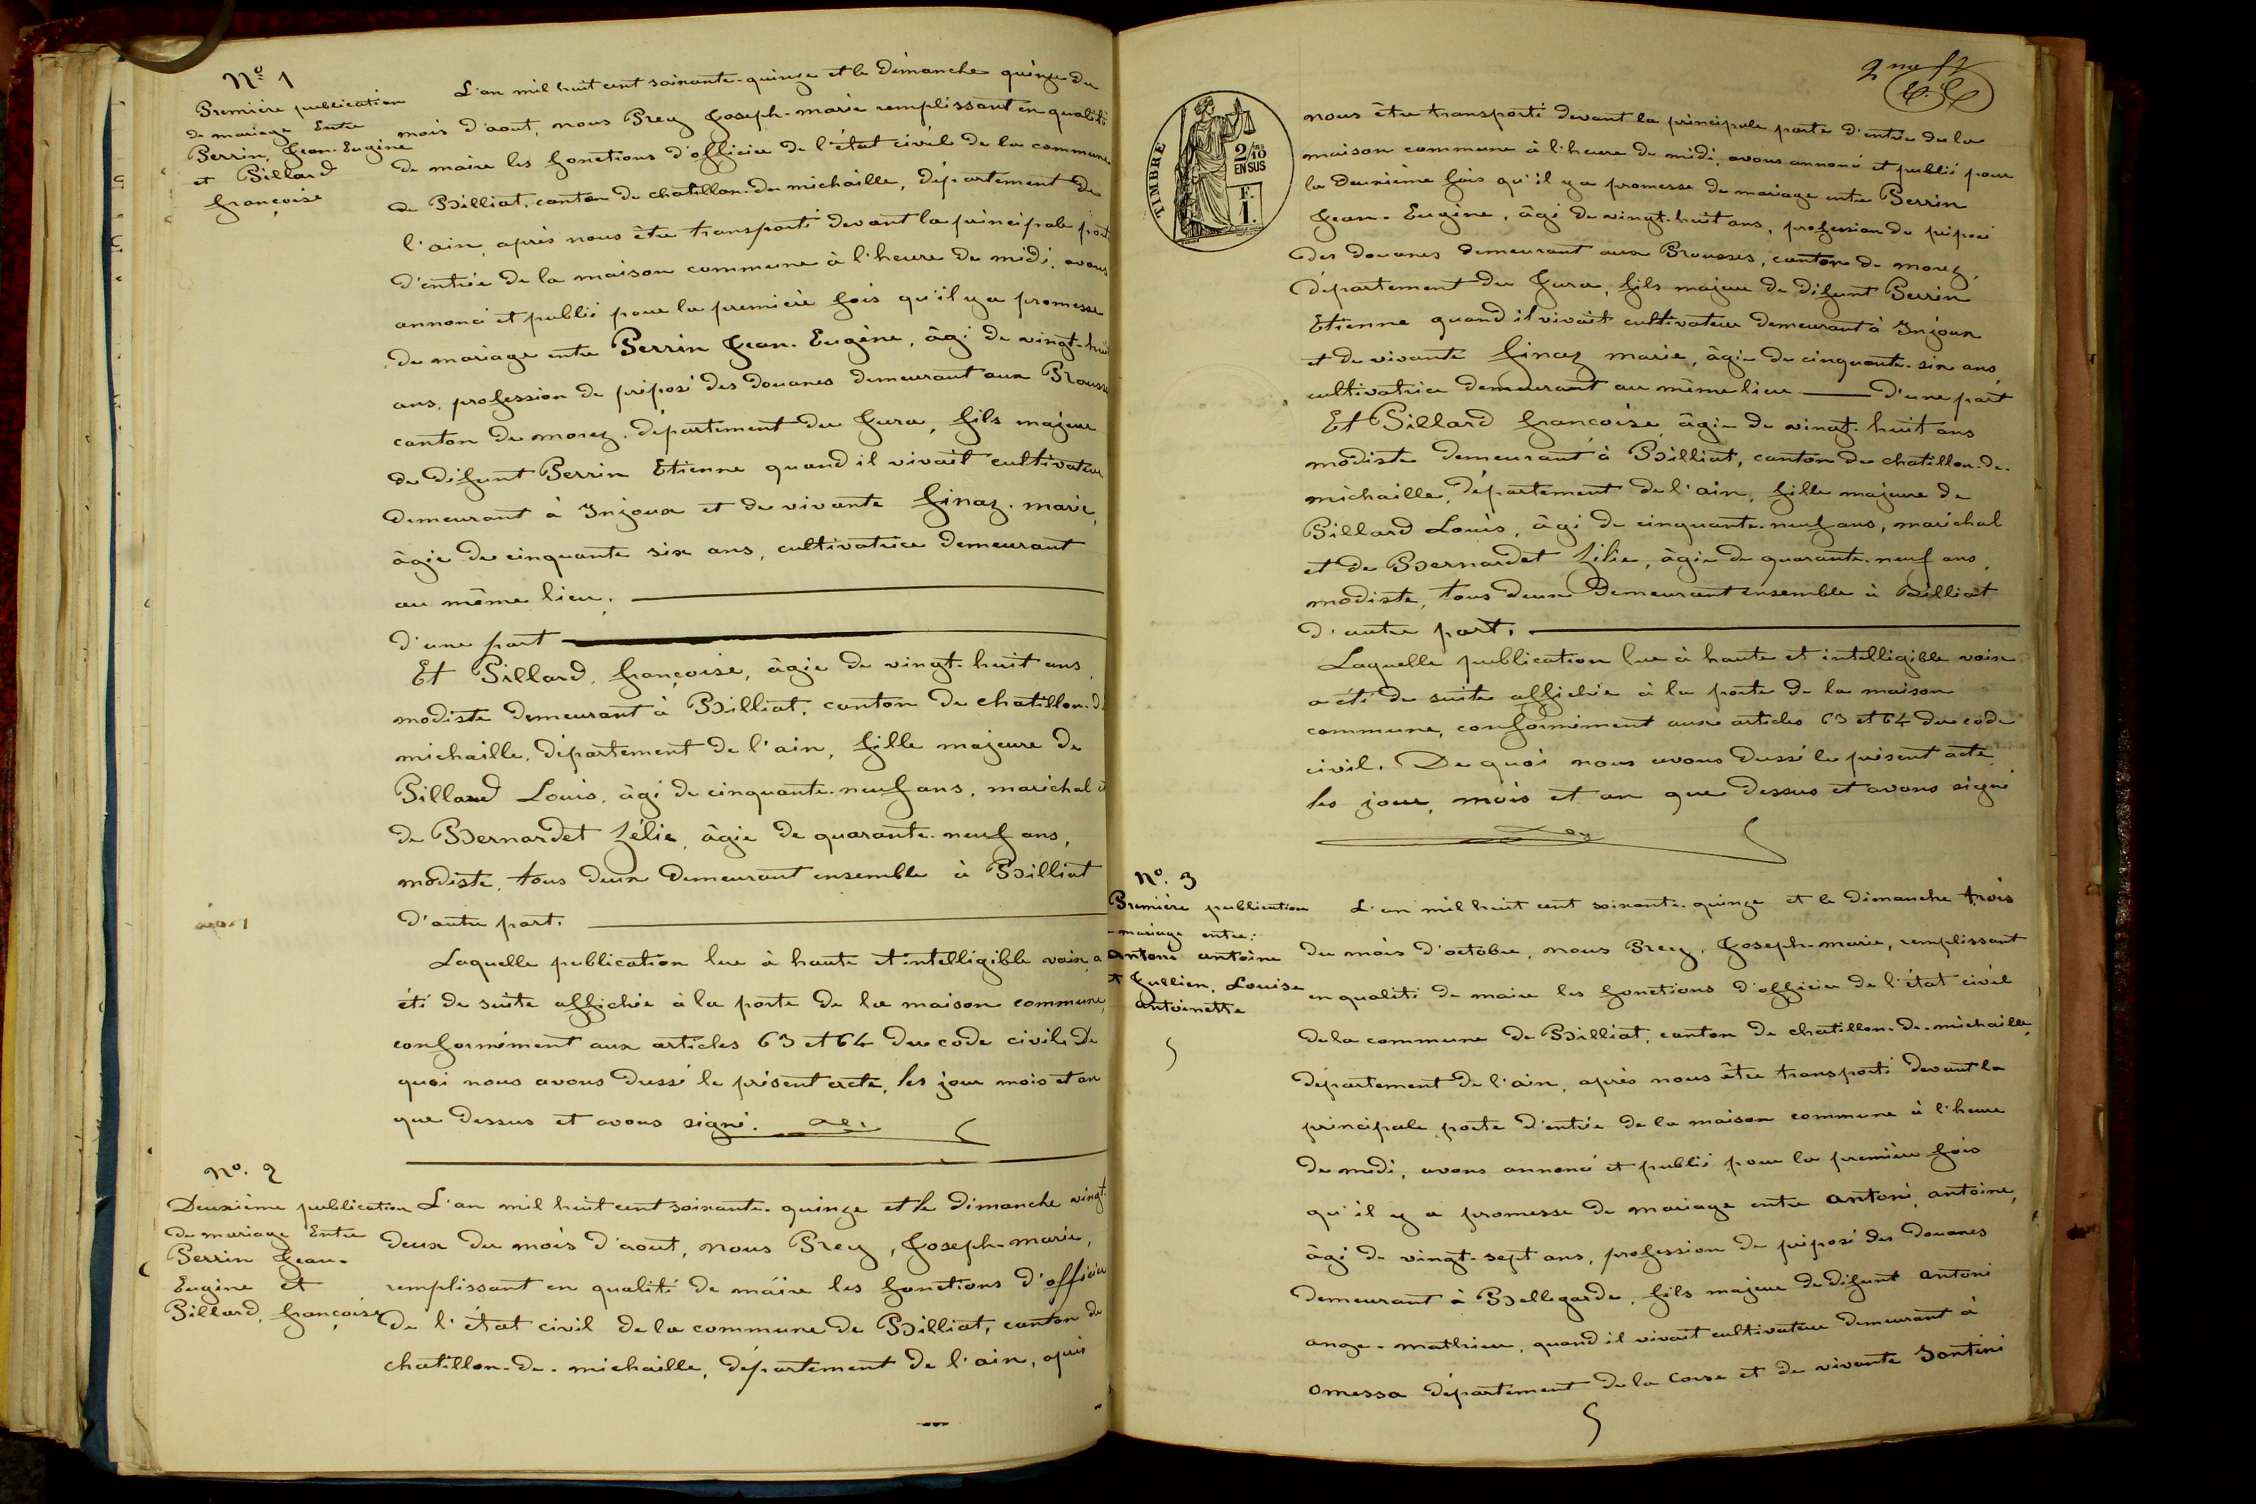 N° 1
Première publication
de mariage Entre
Perrin, Jean-Eugène
et Pillard
françoise
L'an mil huit cent soixante-quinze et le Dimanche quinze du
mois d'aout, nous Prey Joseph-marie remplissant en qualité
de maire les fonctions d'officier de l'état civil de la commune
de Billiat, canton de chatillon-de michaille, département de
l'ain, après nous être transporté devant la principale porte
d'entrée de la maison commune à l'heure de midi, avons
annoncé et publié pour la première fois qu'il y a promesse
de mariage entre Perrin Jean-Eugène, âgé de vingt-huit
ans, profession de préposé des douanes demeurant aux Rousses
canton de morez, département du Jura, fils majeur
de défunt Perrin Etienne quand il vivait cultivateur
demeurant à Injoux et de vivante finaz. marie,
âgée de cinquante six ans, cultivatrice demeurant
au même lieu,
d'une part
Et Pillard, françoise, âgée de vingt-huit ans,
modiste demeurant à Billiat, canton de chatillon-de
michaille, département de l'ain, fille majeure de
Pillard Louis, âgé de cinquante-neuf ans, maréchal et
de Bernardet Zélie, âgée de quarante-neuf ans,
modiste, tous deux demeurant ensemble à Billiat
d'autre part.
Laquelle publication lue à haute et intelligible voix, a
été de suite affichée à la porte de la maison commune,
conformément aux articles 63 et 64 du code civil. De
quoi nous avons dressé le présent acte, les jour mois et an
que dessus et avons signé.
N° 2
Deuxième publication
de mariage Entre
Perrin Jean-
Eugène et
Pillard, françoise
L'an mil huit cent soixante-quinze et le dimanche vingt-
deux du mois d'aout, nous Prey, Joseph-marie,
remplissant en qualité de maire les fonctions d'officier
de l'état civil de la commune de Billiat, canton de
chatillon-de-michaille, département de l'ain, après
2me ft
TIMBRE
2/10mes
EN SUS
F.
1.
nous être transporté devant la principale porte d'entrée de la
maison commune à l'heure de midi, avons annoncé et publié pour
la deuxième fois qu'il y a promesse de mariage entre Perrin
Jean-Eugène, âgé de vingt-huit ans, profession de préposé
des douanes demeurant aux Rousses, canton de morez,
département du Jura, fils majeur de défunt Perrin
Etienne quand il vivait cultivateur demeurant à Injoux
et de vivante finaz marie, âgée de cinquante-six ans,
cultivatrice demeurant au même lieu d'une part
Et Pillard françoise, âgée de vingt-huit ans
modiste demeurant à Billiat, canton de chatillon-de-
michaille, département de l'ain, fille majeure de
Pillard Louis, âgé de cinquante-neuf ans, maréchal
et de Bernardet Zélie, âgée de quarante-neuf ans,
modiste, tous deux demeurant ensemble à Billiat
d'autre part.
Laquelle publication lue à haute et intelligible voix
a été de suite affichée à la porte de la maison
commune, conformément aux articles 63 et 64 du code
civil. De quoi nous avons dressé le présent acte
les jour, mois et an que dessus et avons signé
N° 3
Première publication
mariage entre:
antoni antoine
et Jullien, Louise
antoinette
L'an mil huit cent soixante-quinze et le Dimanche trois
du mois d'octobre, nous Prey, Joseph-marie, remplissant
en qualité de maire les fonctions d'officier de l'état civil
de la commune de Billiat, canton de chatillon-de-michaille,
département de l'ain, après nous être transporté devant la
principale porte d'entrée de la maison commune à l'heure
de midi, avons annoncé et publié pour la première fois
qu'il y a promesse de mariage entre antoni, antoine,
âgé de vingt-sept ans, profession de préposé des douanes
demeurant à Bellegarde, fils majeur de défunt antoni
ange-mathieu, quand il vivait cultivateur demeurant à
omessa département de la Corse et de vivante Santini